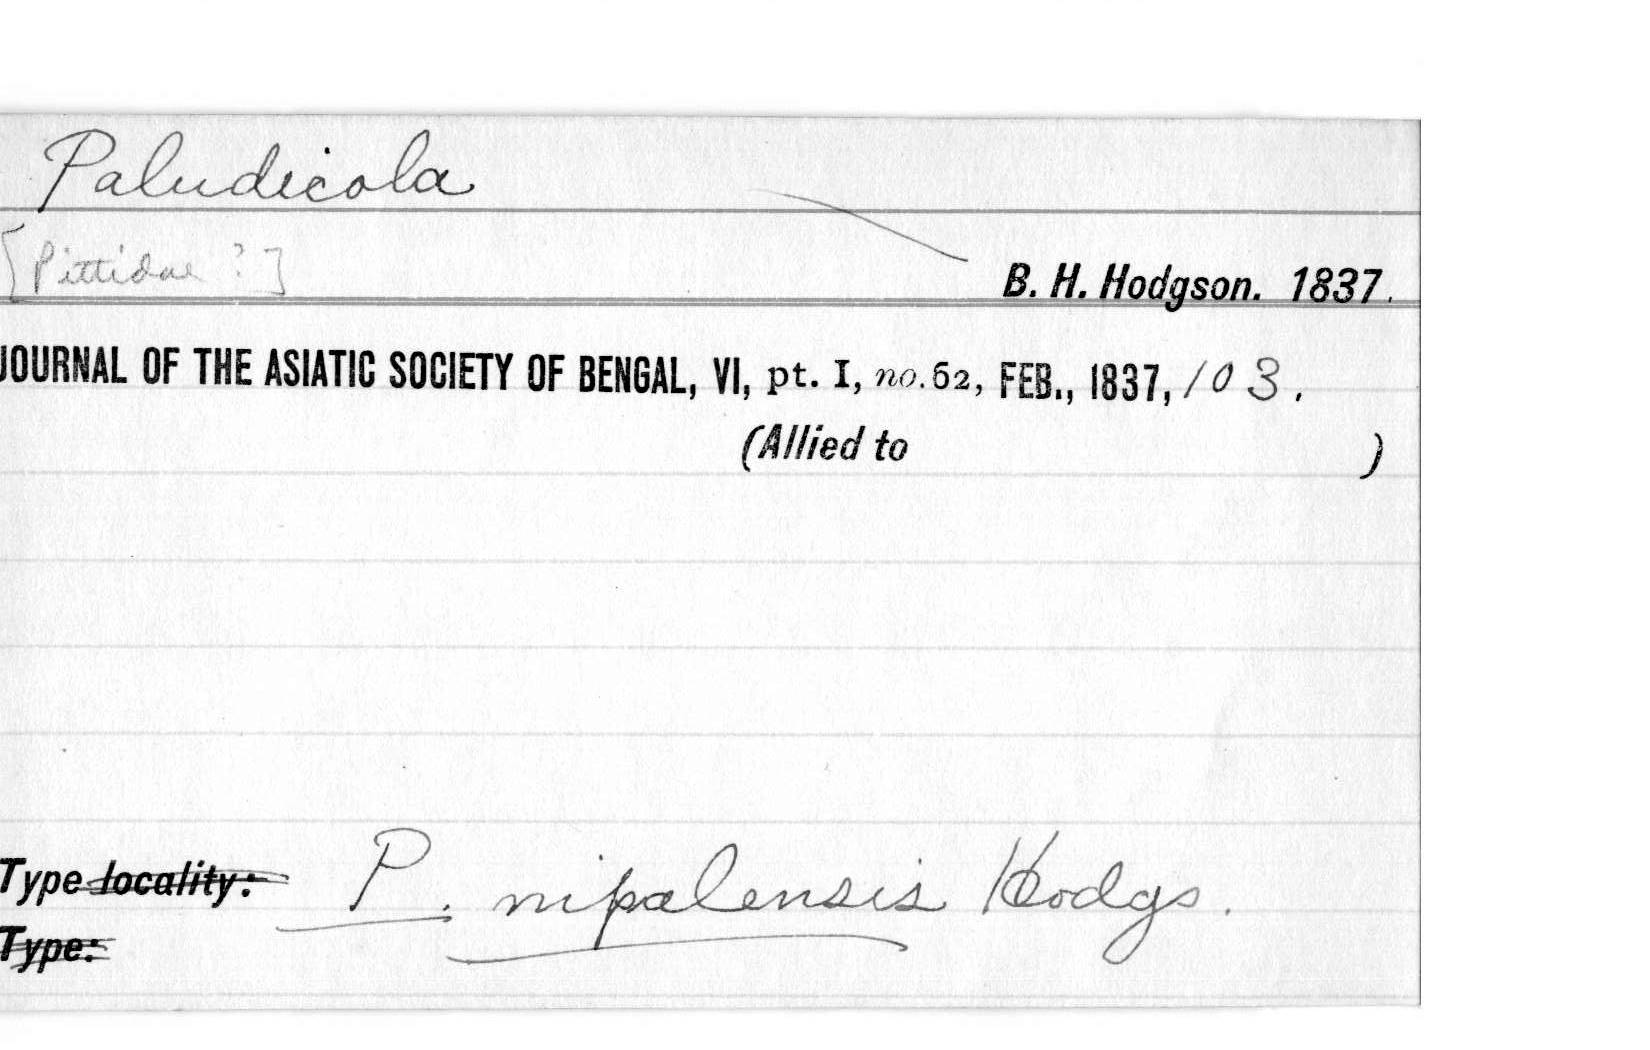 Paludicola
[Pittidae ?]
B. H. Hodgson. 1837.
JOURNAL OF THE ASIATIC SOCIETY OF BENGAL, VI, pt. I, no. 62, FEB., 1837, 103.
(Allied to )
Type locality: P. nipalensis Hodgs.
Type: